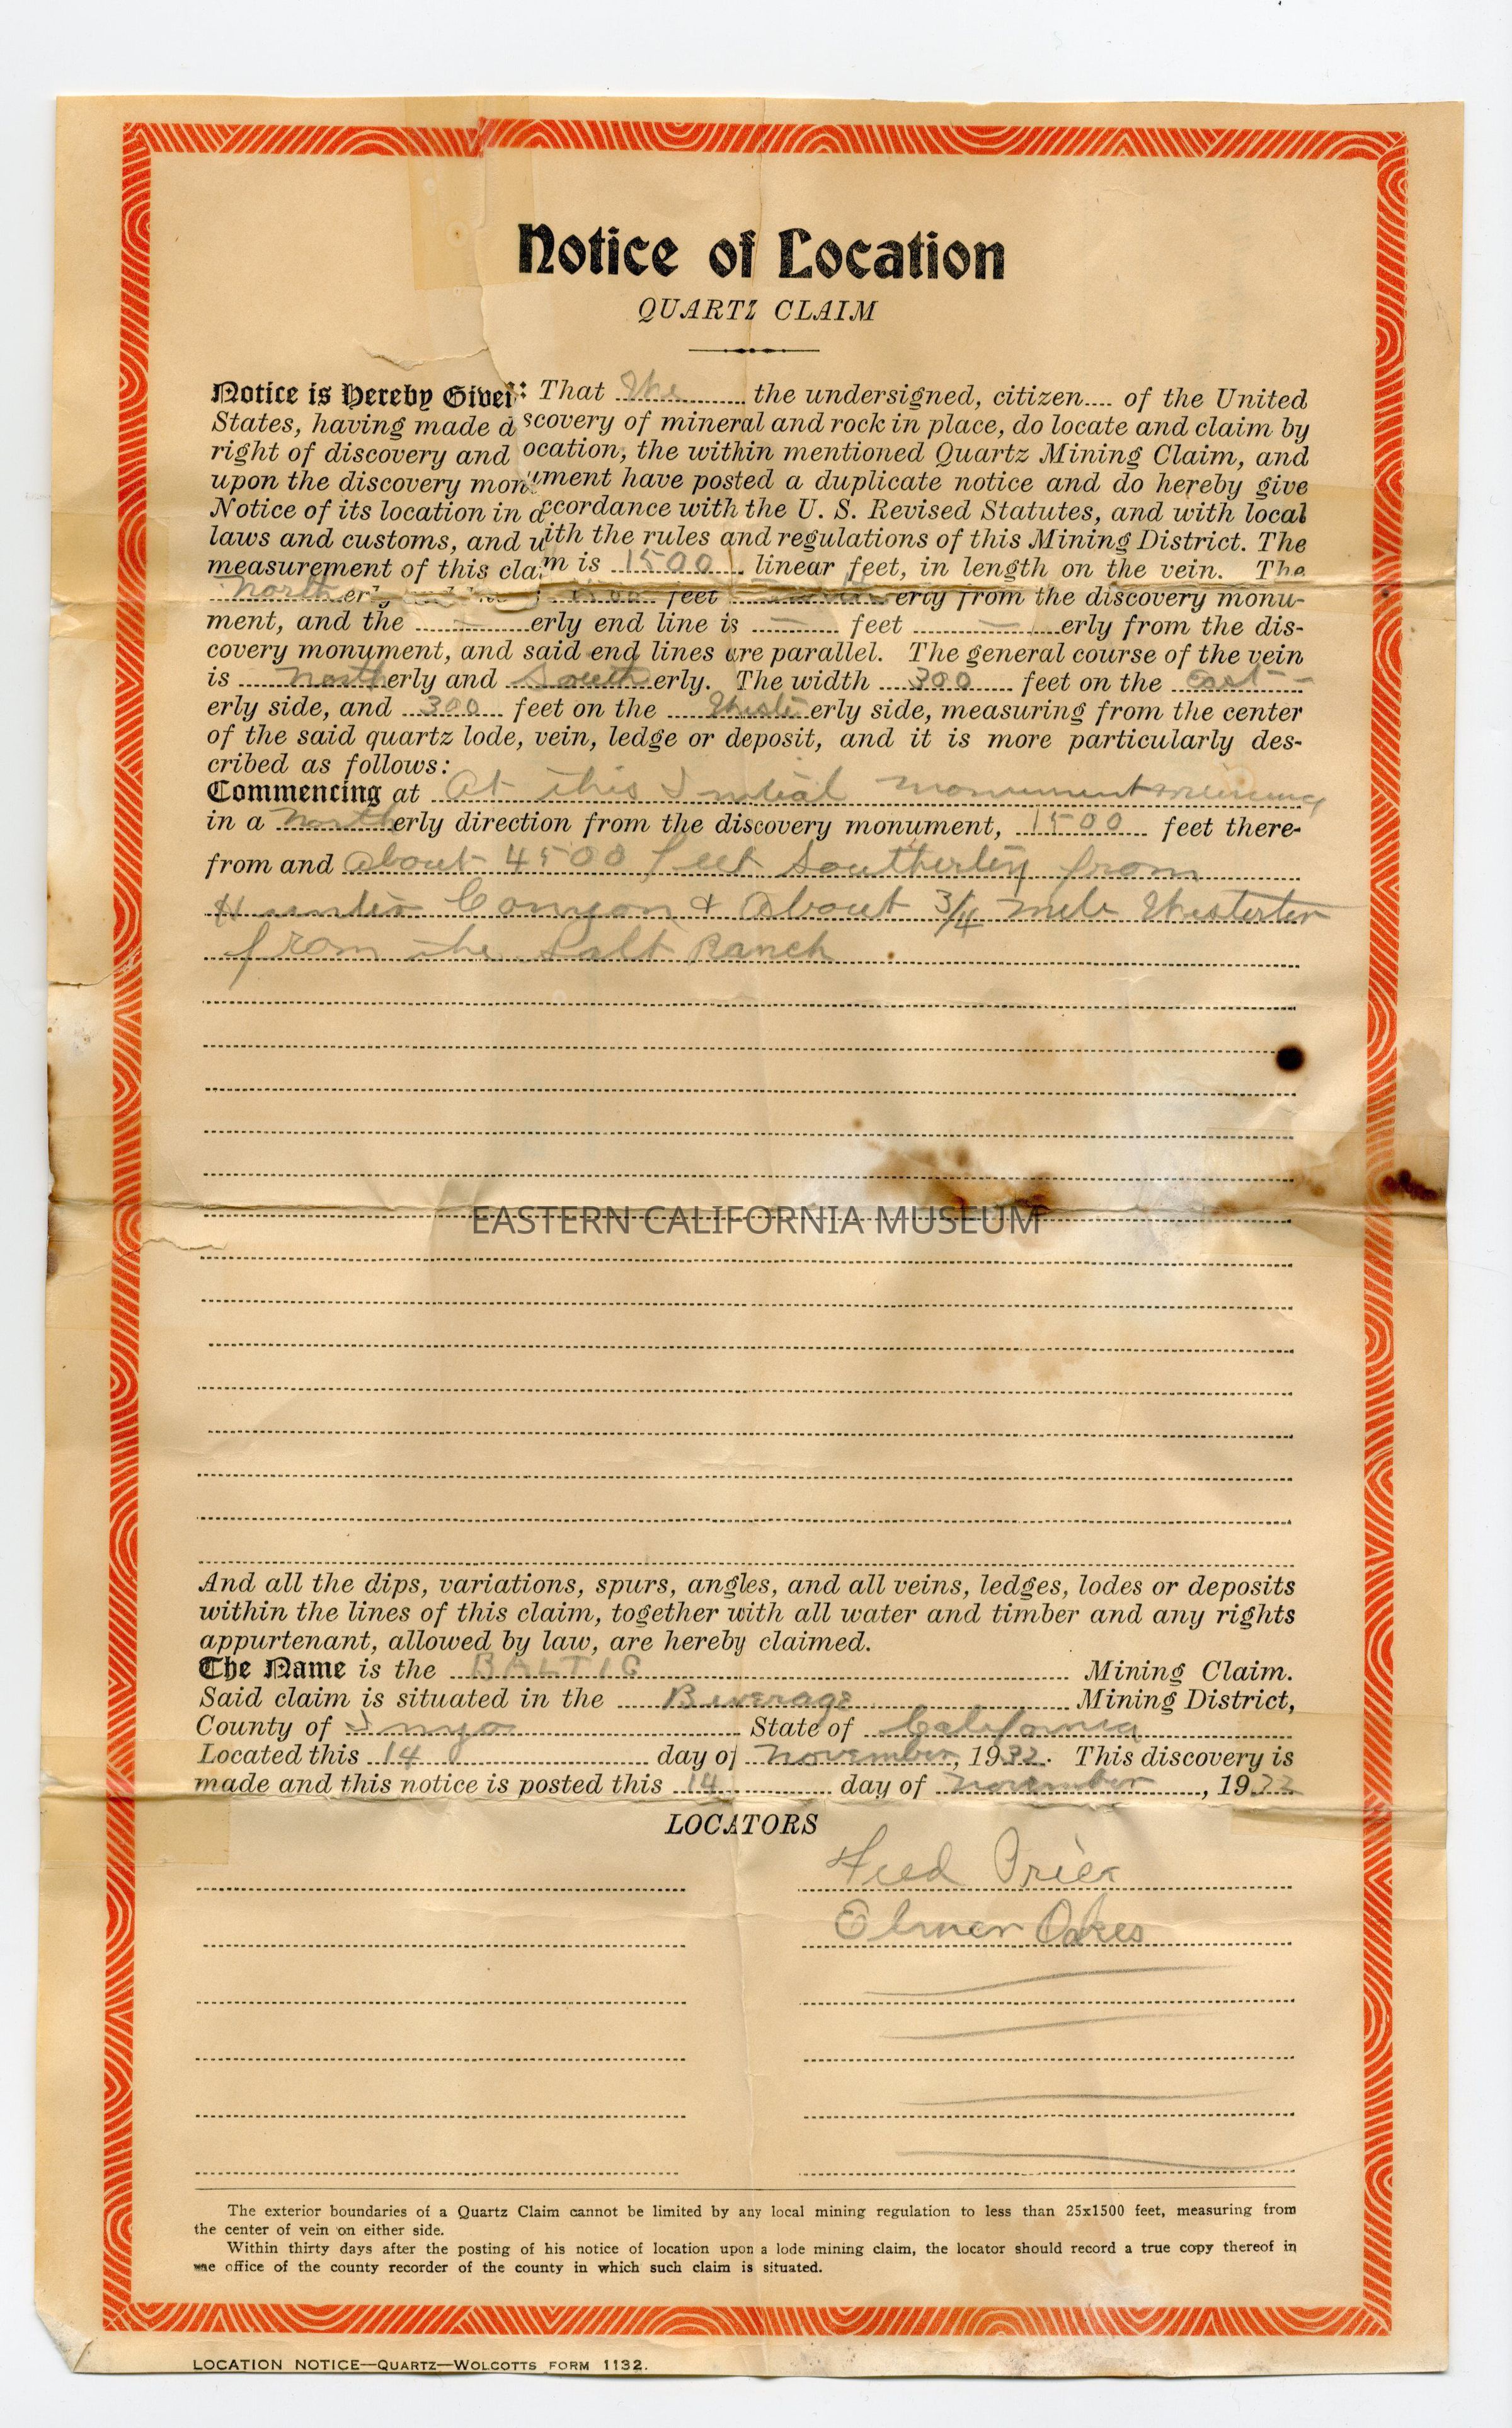 Notice of Location
QUARTZ CLAIM
Notice is Hereby Given: That We the undersigned, citizen.... of the United
States, having made discovery of mineral and rock in place, do locate and claim by
right of discovery and location, the within mentioned Quartz Mining Claim, and
upon the discovery monument have posted a duplicate notice and do hereby give
Notice of its location in accordance with the U. S. Revised Statutes, and with local
laws and customs, and with the rules and regulations of this Mining District. The
measurement of this claim is 1500 linear feet, in length on the vein. The
northerly 1500 feet erly from the discovery monu-
ment, and the — erly end line is — feet — erly from the dis-
covery monument, and said end lines are parallel. The general course of the vein
is northerly and Southerly. The width 300 feet on the east-
erly side, and 300 feet on the Westerly side, measuring from the center
of the said quartz lode, vein, ledge or deposit, and it is more particularly des-
cribed as follows:
Commencing at At this Initial monument running
in a northerly direction from the discovery monument, 1500 feet there-
from and About 4500 feet Southerly from
Hunter Canyon & About 3/4 mile Westerly
from the Salt Ranch
EASTERN CALIFORNIA MUSEUM
And all the dips, variations, spurs, angles, and all veins, ledges, lodes or deposits
within the lines of this claim, together with all water and timber and any rights
appurtenant, allowed by law, are hereby claimed.
The Name is the BALTIC Mining Claim.
Said claim is situated in the Beverage Mining District,
County of Inyo State of California
Located this 14 day of November, 1932. This discovery is
made and this notice is posted this 14 day of November, 1932
LOCATORS
Fred Price
Elmer Oakes
The exterior boundaries of a Quartz Claim cannot be limited by any local mining regulation to less than 25x1500 feet, measuring from
the center of vein on either side.
Within thirty days after the posting of his notice of location upon a lode mining claim, the locator should record a true copy thereof in
the office of the county recorder of the county in which such claim is situated.
LOCATION NOTICE—QUARTZ—WOLCOTTS FORM 1132.